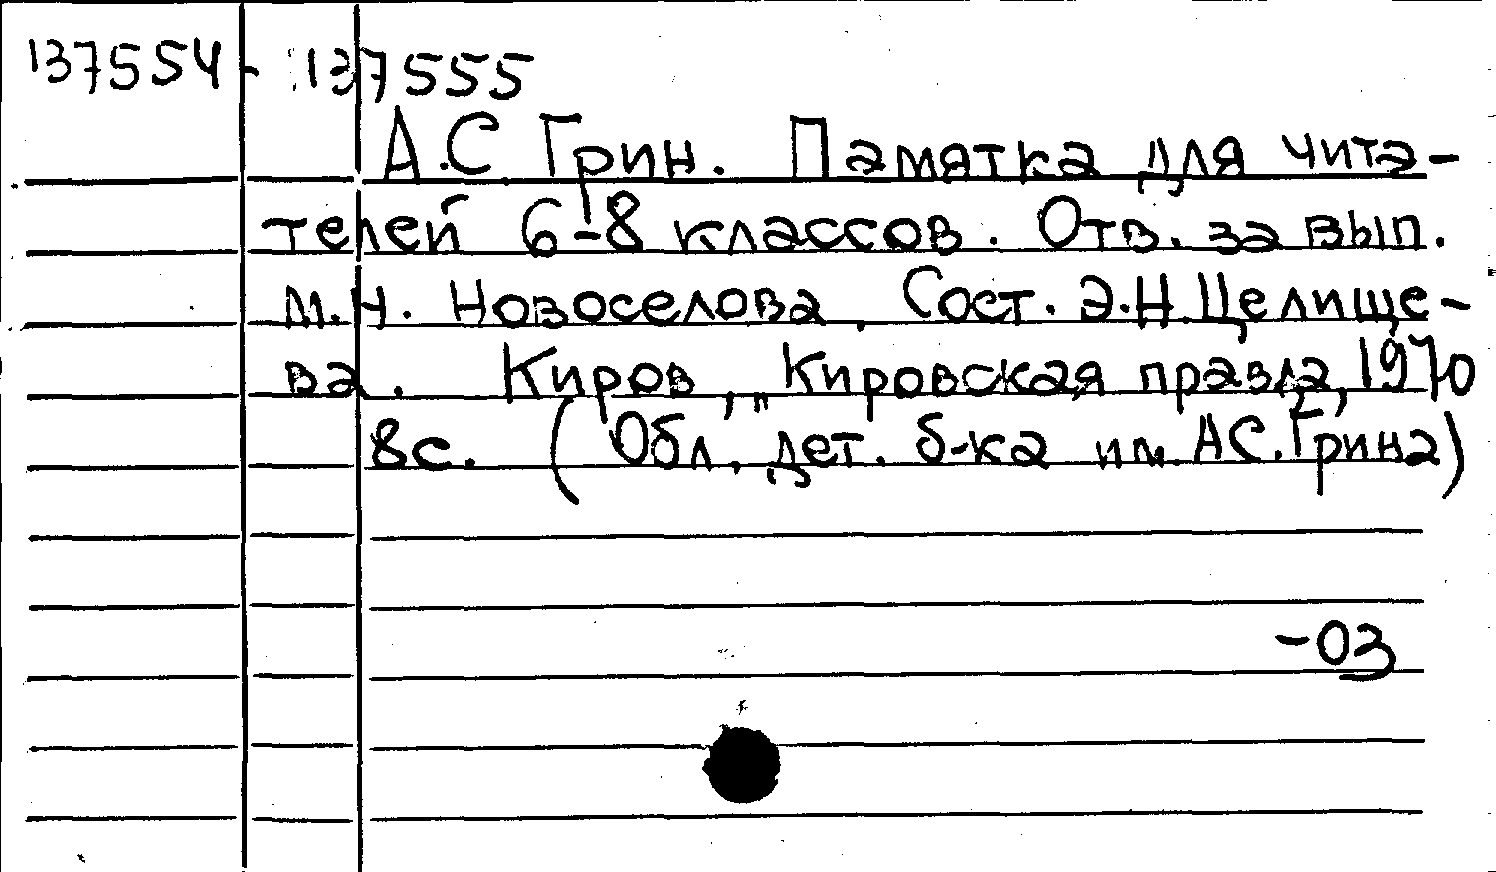 137554 - 137555
А.С. Грин. Памятка для чита-
телей 6-8 классов. Отв. за вып.
М.Н. Новоселова, Сост. Э.Н. Целище-
ва. Киров, „Кировская правда, 1970
8с. (Обл. дет. б-ка им. А.С. Грина)
-03